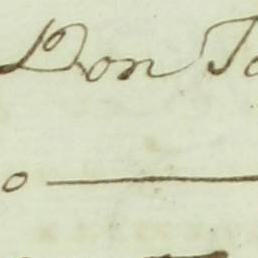 Don
o